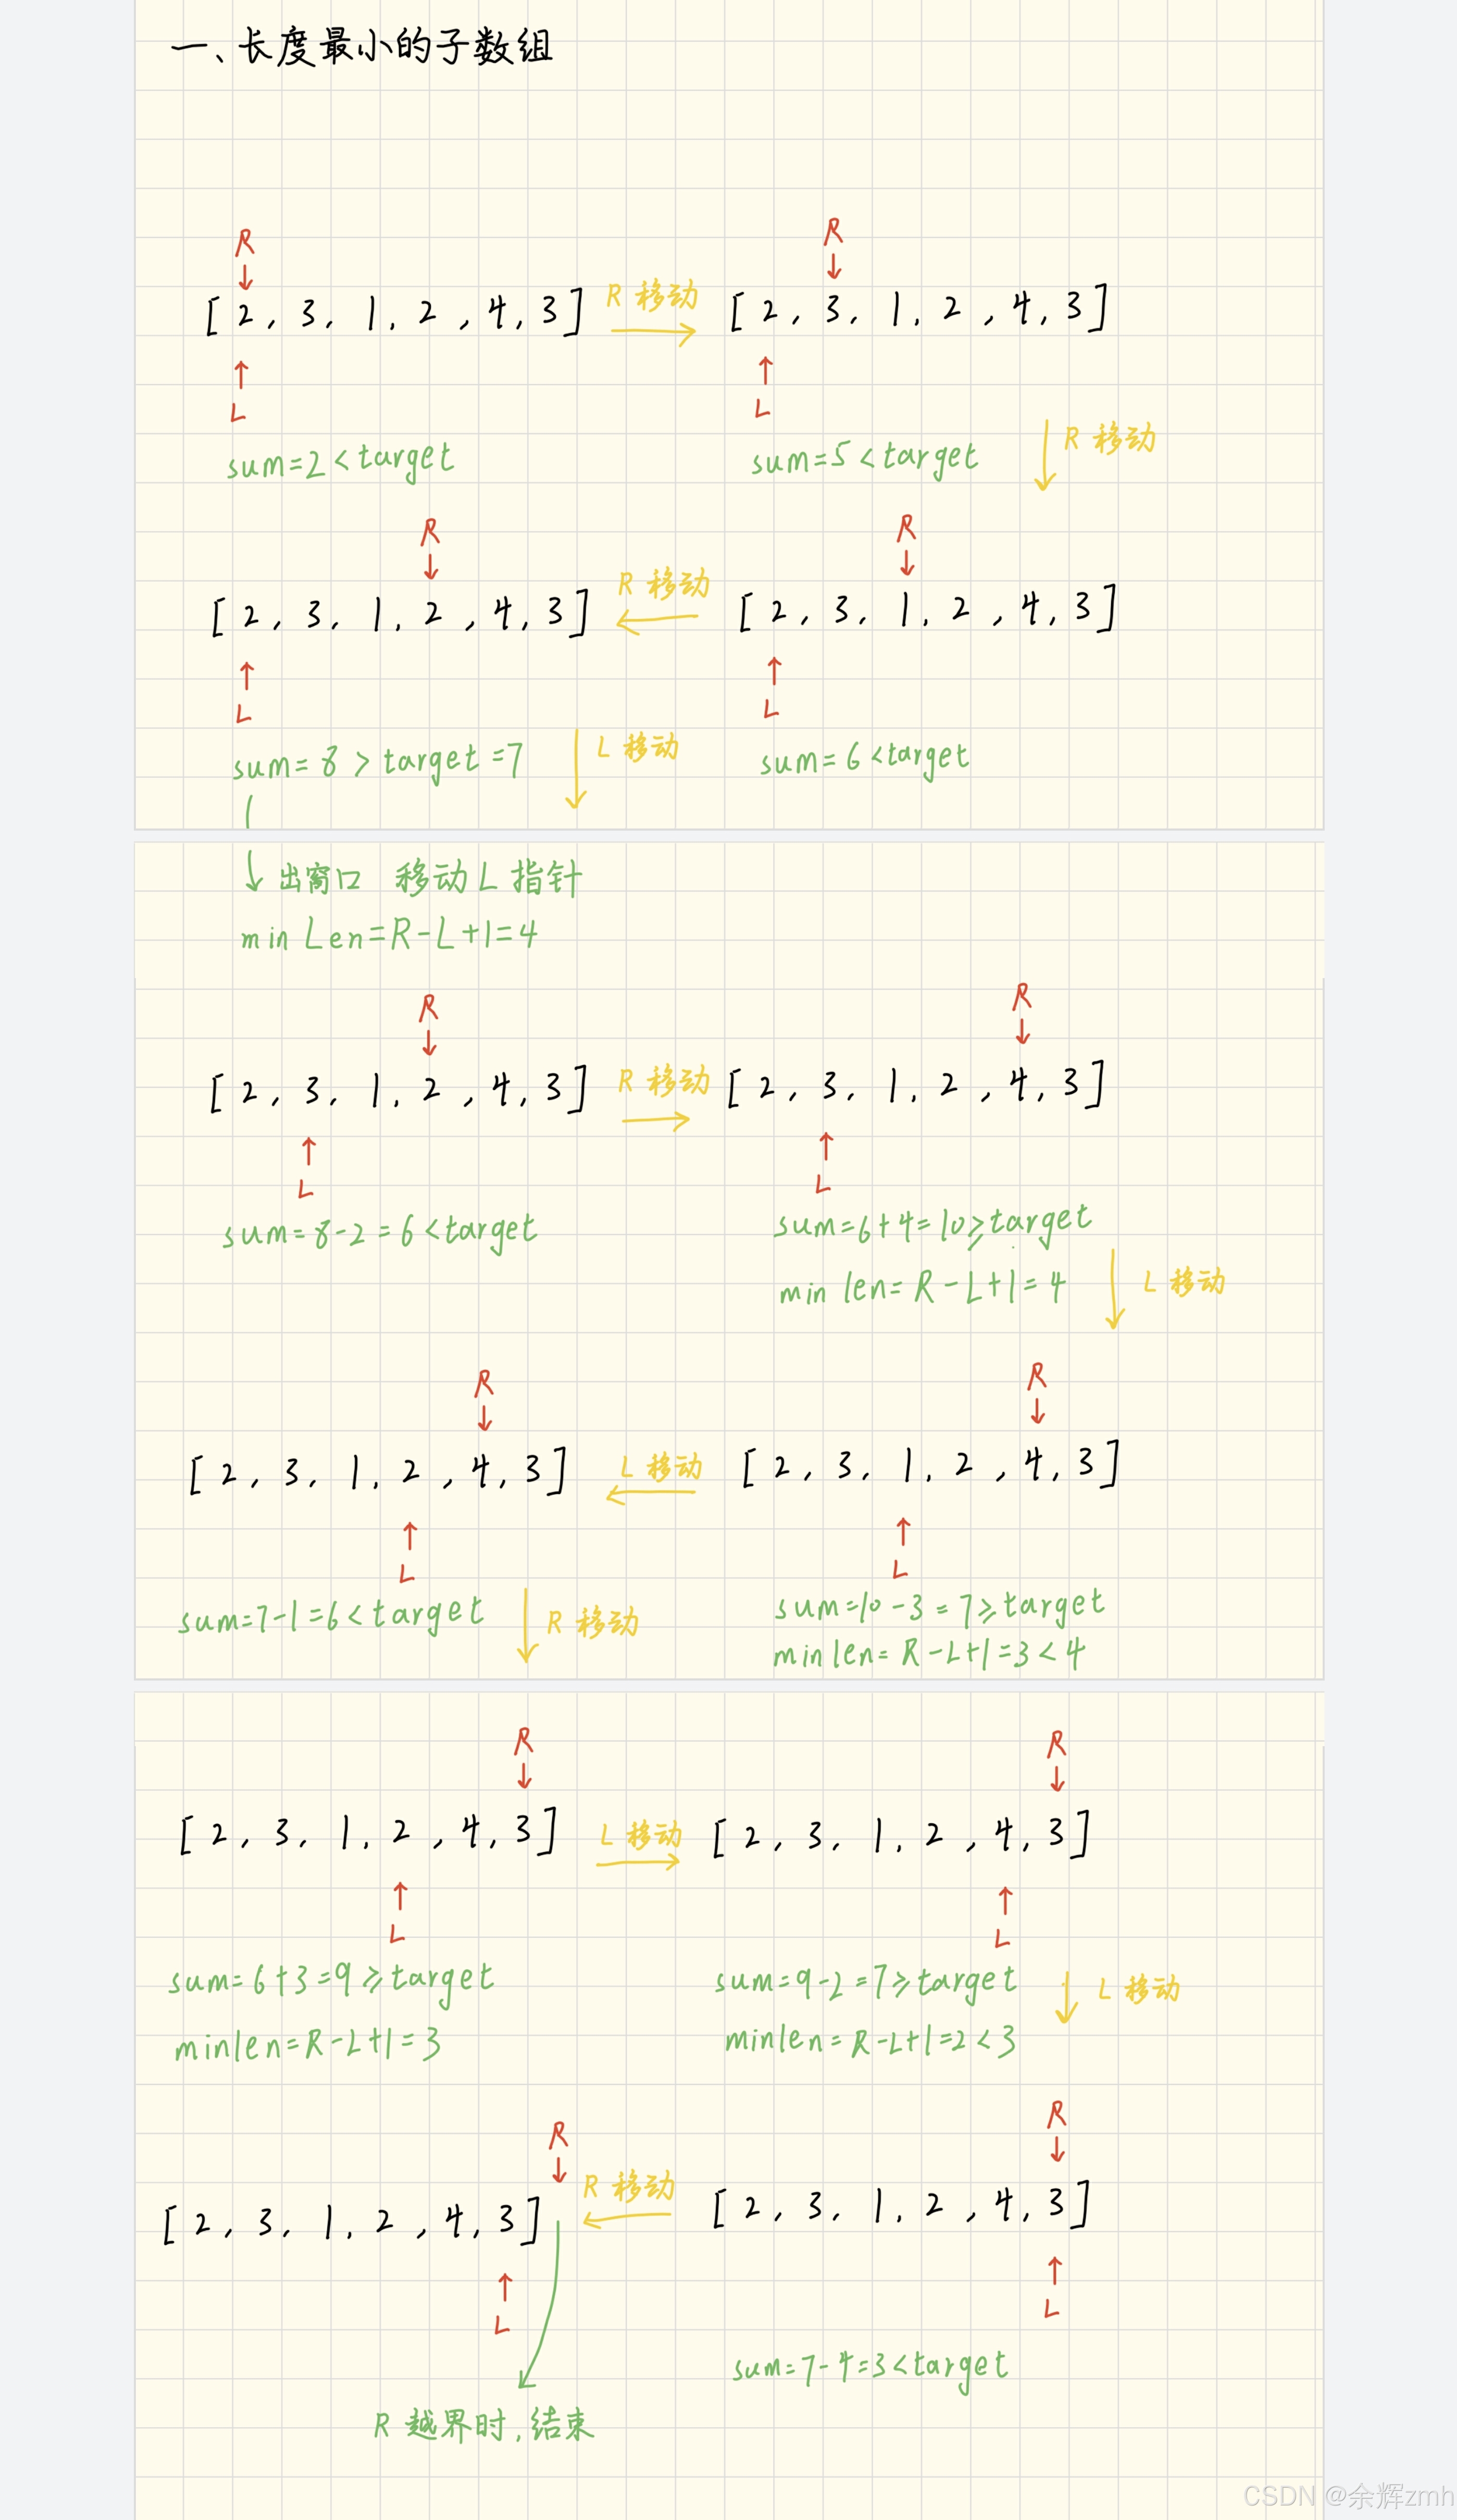 一、长度最小的子数组
R R
[2, 3, 1, 2, 4, 3] R 移动 [2, 3, 1, 2, 4, 3]
L L
sum=2<target sum=5<target R 移动
R R
[2, 3, 1, 2, 4, 3] R 移动 [2, 3, 1, 2, 4, 3]
L L
sum=8>target=7 L 移动 sum=6<target
出窗口 移动L指针
min Len=R-L+1=4
R R
[2, 3, 1, 2, 4, 3] R 移动 [2, 3, 1, 2, 4, 3]
L L
sum=8-2=6<target sum=6+4=10≥target
min len=R-L+1=4 L 移动
R R
[2, 3, 1, 2, 4, 3] L 移动 [2, 3, 1, 2, 4, 3]
L L
sum=7-1=6<target R 移动 sum=10-3=7≥target
minlen=R-L+1=3<4
R R
[2, 3, 1, 2, 4, 3] L 移动 [2, 3, 1, 2, 4, 3]
L L
sum=6+3=9≥target sum=9-2=7≥target L 移动
minlen=R-L+1=3 minlen=R-L+1=2<3
R R
[2, 3, 1, 2, 4, 3] R 移动 [2, 3, 1, 2, 4, 3]
L L
sum=7-4=3<target
R 越界时,结束
CSDN @余辉zmh